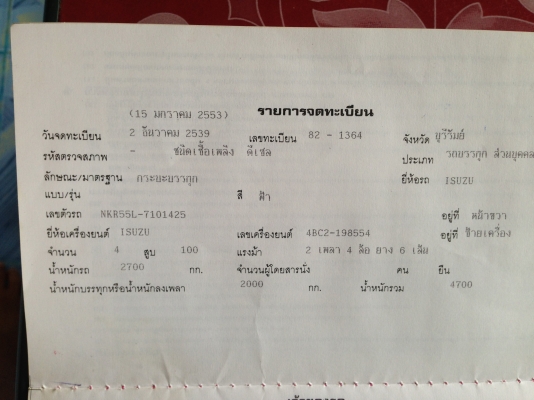 (15 มกราคม 2553) รายการจดทะเบียน
วันจดทะเบียน 2 ธันวาคม 2539 เลขทะเบียน 82 - 1364 จังหวัด บุรีรัมย์
รหัสตรวจสภาพ - ชนิดเชื้อเพลิง ดีเซล ประเภท รถบรรทุก ส่วนบุคคล
ลักษณะ/มาตรฐาน กระบะบรรทุก ยี่ห้อรถ ISUZU
แบบ/รุ่น สี ฟ้า
เลขตัวรถ NKR55L-7101425 อยู่ที่ หน้าขวา
ยี่ห้อเครื่องยนต์ ISUZU เลขเครื่องยนต์ 4BC2-198554 อยู่ที่ ซ้ายเครื่อง
จำนวน 4 สูบ 100 แรงม้า 2 เพลา 4 ล้อ ยาง 6 เส้น
น้ำหนักรถ 2700 กก. จำนวนผู้โดยสารนั่ง คน ยืน
น้ำหนักบรรทุกหรือน้ำหนักลงเพลา 2000 กก. น้ำหนักรวม 4700